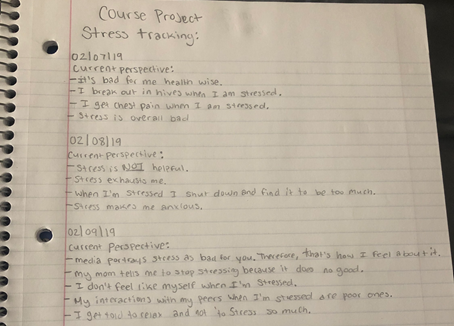 Course Project
Stress tracking:
02/07/19
Current perspective:
- it's bad for me health wise.
- I break out in hives when I am stressed.
- I get chest pain when I am stressed.
- Stress is overall bad
02/08/19
Current perspective:
- Stress is NOT helpful.
- Stress exhausts me.
- When I'm stressed I shut down and find it to be too much.
- Stress makes me anxious.
02/09/19
Current perspective:
- media portrays stress as bad for you. Therefore, that's how I feel about it.
- my mom tells me to stop stressing because it does no good.
- I don't feel like myself when I'm stressed.
- My interactions with my peers when I'm stressed are poor ones.
- I get told to relax and not to stress so much.